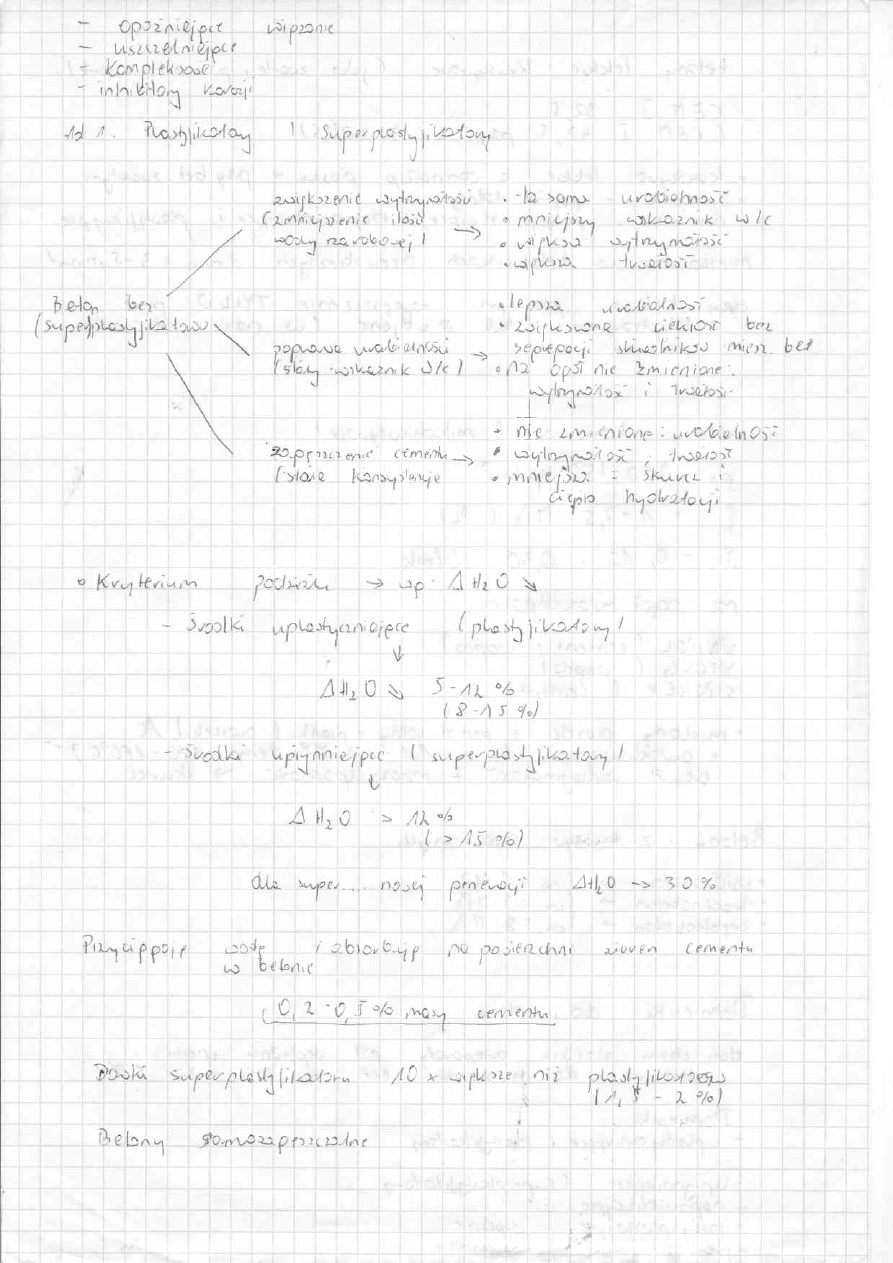 - opóźniające wiązanie
- uszczelniające
- kompleksowe
- inhibitory korozji
Ad 1. Plastyfikatory / superplastyfikatory
Beton bez
(super)plastyfikatorów
zwiększenie wytrzymałości
(zmniejszenie ilość
wody zarobowej) →
• ta sama - urabialność
• mniejszy wskaźnik w/c
• większa wytrzymałość
• większa trwałość
poprawa urabialności →
(stały wskaźnik w/c)
• lepsza urabialność
• zwiększona ciekłość bez
segregacji składników miesz. bet
• na ogół nie zmienione:
wytrzymałość i trwałość
zagęszczenie cementu →
(stała konsystencje
• nie zmienione: urabialność
• wytrzymałość, trwałość
• mniejsza = skurcz i
ciepło hydratacji
• Kryterium podziału → wg. ΔH₂O ↘
- środki uplastyczniające (plastyfikatory)
↓
ΔH₂O ↘ 5-12 %
(8-15 %)
- środki upłynniające (superplastyfikatory)
↓
ΔH₂O > 12 %
(> 15 %)
dla super.... nowej generacji ΔH₂O -> 30 %
Przyciągają wodę i absorbują na powierzchni ziaren cementu
w betonie
(0,2-0,5 % masy cementu
Dawka superplastyfikatoru 10 x większe niż plastyfikatorów
(1,5 - 2 %)
Betony samozagęszczalne